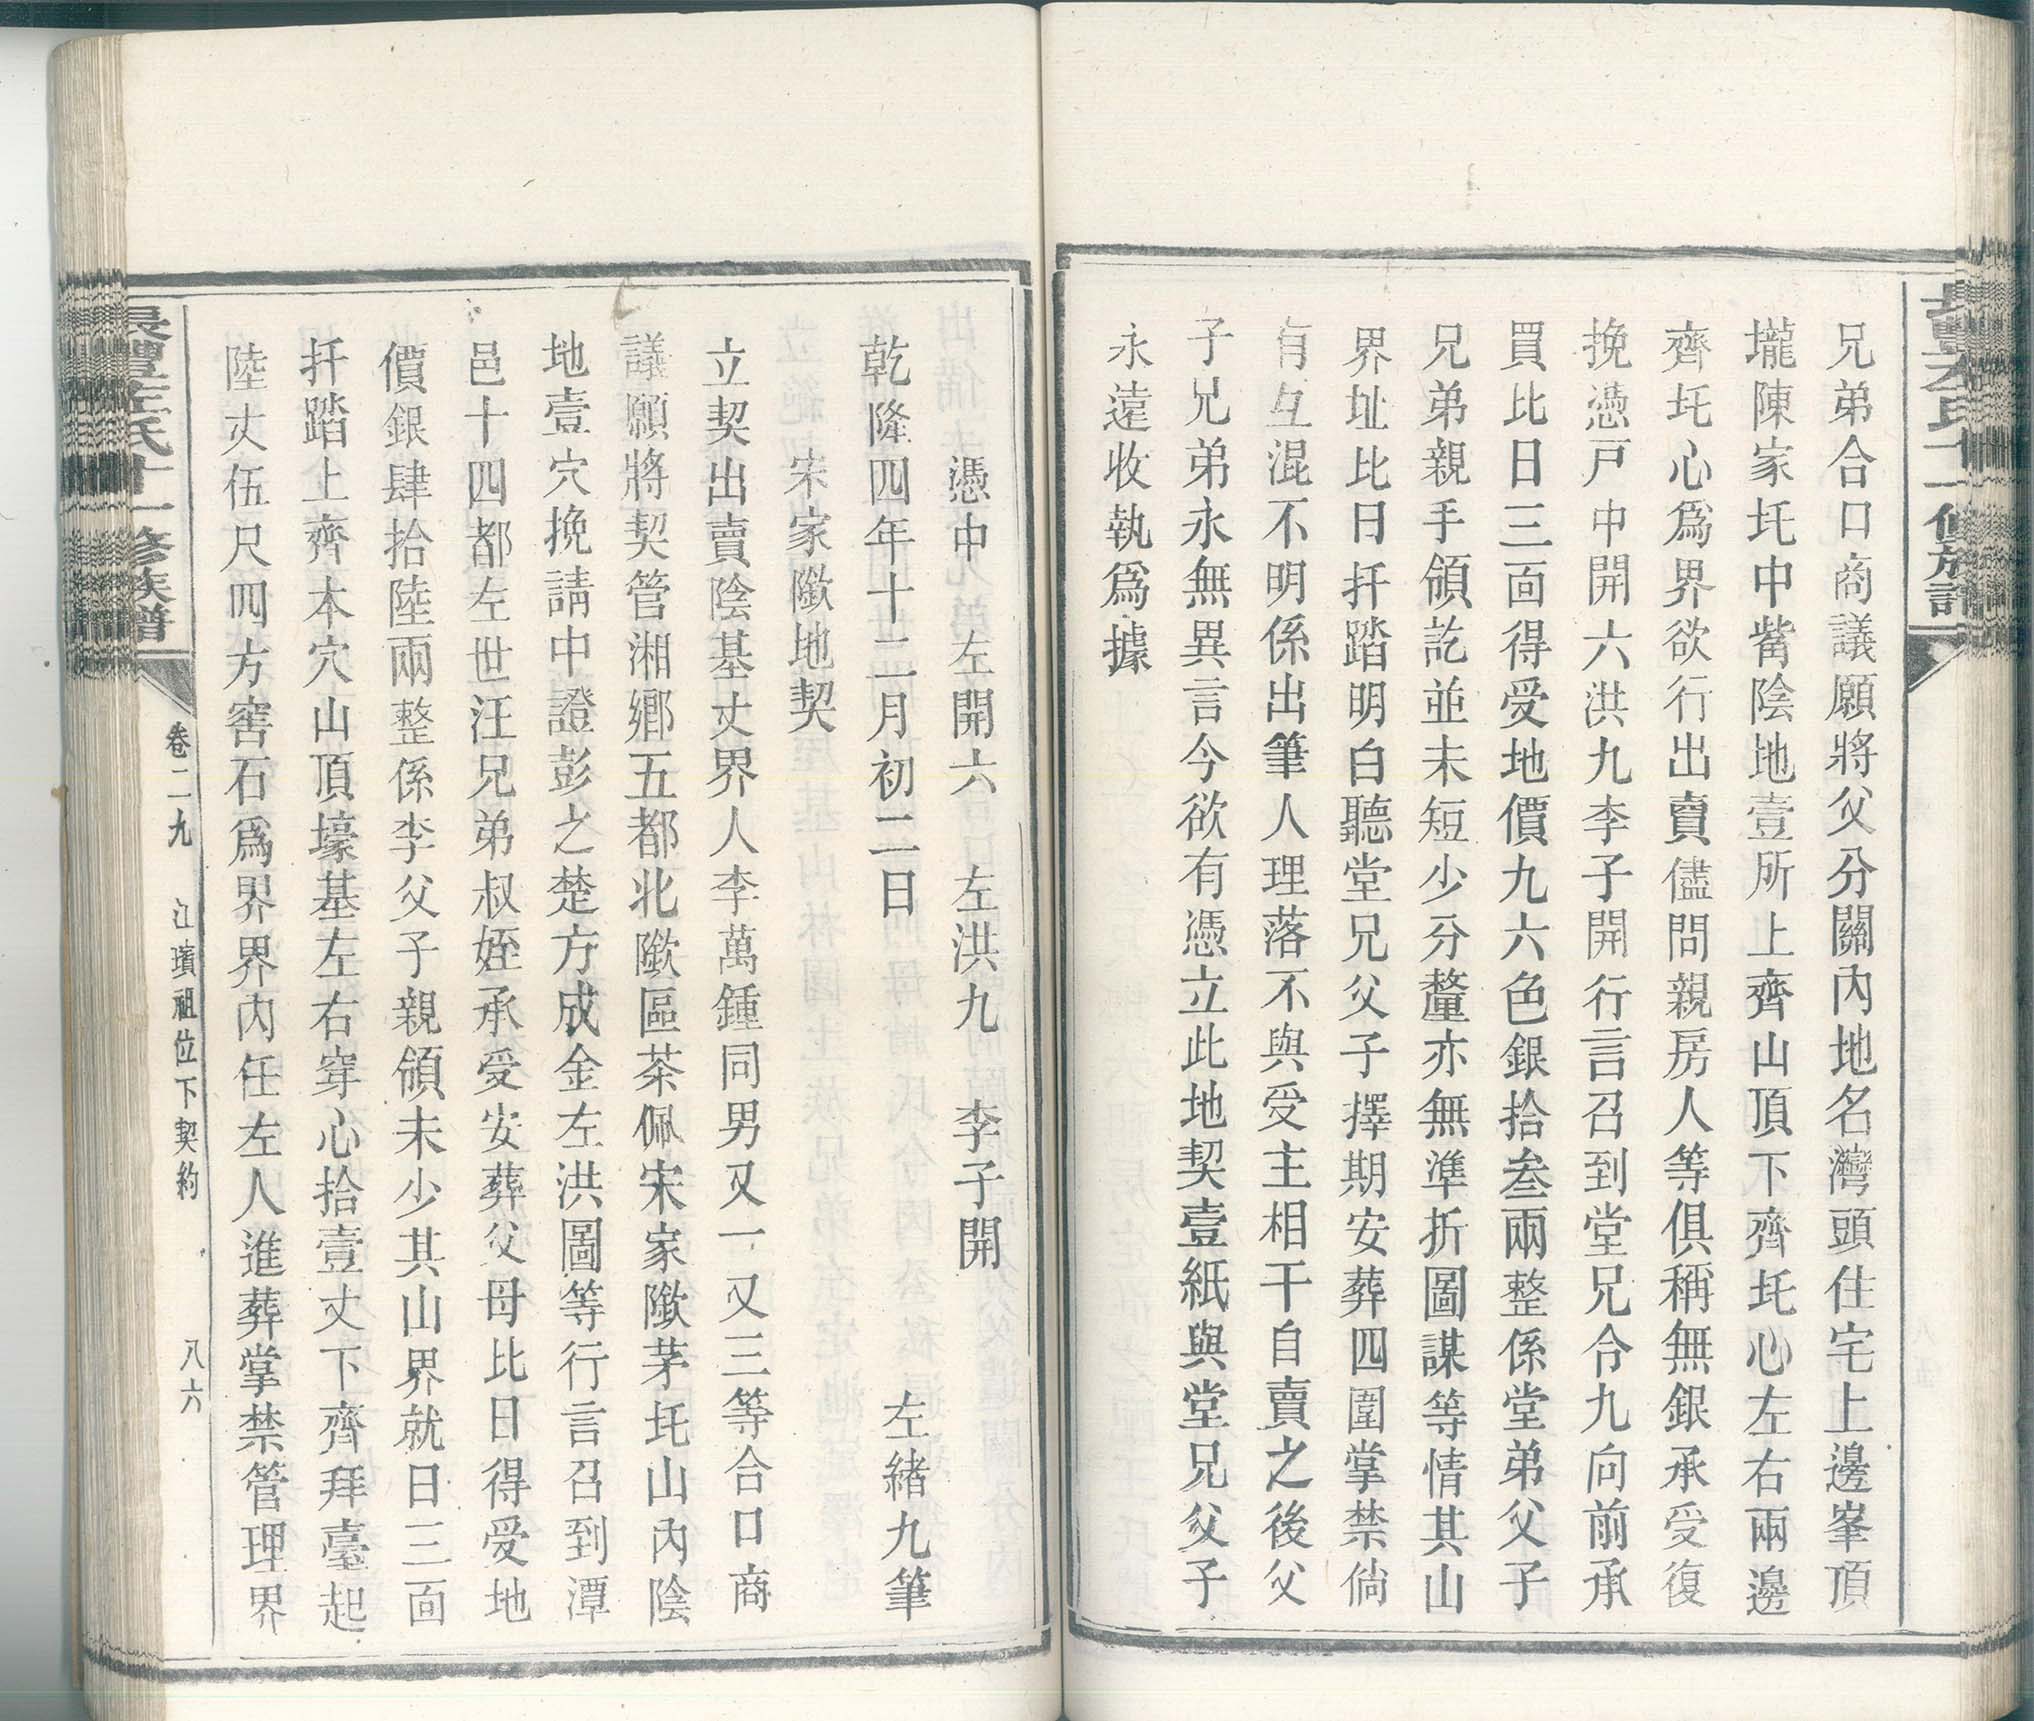 兄弟合口商議願將父分關內地名灣頭住宅上邊峯頂
壠陳家圫中嘴陰地壹所上齊山頂下齊圫心左右兩邊
齊圫心爲界欲行出賣儘問親房人等俱稱無銀承受復
挽憑戸中開六洪九李子開行言召到堂兄令九向前承
買比日三面得受地價九六色銀拾叁兩整係堂弟父子
兄弟親手領訖並未短少分釐亦無準折圖謀等情其山
界址比日扦踏明白聽堂兄父子擇期安葬四圍掌禁倘
有互混不明係出筆人理落不與受主相干自賣之後父
子兄弟永無異言今欲有憑立此地契壹紙與堂兄父子
永遠收執爲據
憑中 左開六 左洪九 李子開
乾隆四年十二月初二日 左緒九筆
宋家隞地契
立契出賣陰基丈界人李萬鍾同男又一又三等合口商
議願將契管湘鄉五都北隞區茶佩宋家隞茅圫山內陰
地壹穴挽請中證彭之楚方成金左洪圖等行言召到潭
邑十四都左世汪兄弟叔姪承受安葬父母比日得受地
價銀肆拾陸兩整係李父子親領未少其山界就日三面
扦踏上齊本穴山頂壕基左右穿心拾壹丈下齊拜臺起
陸丈伍尺四方窖石爲界界內任左人進葬掌禁管理界
卷二九 江璜祖位下契約 八六